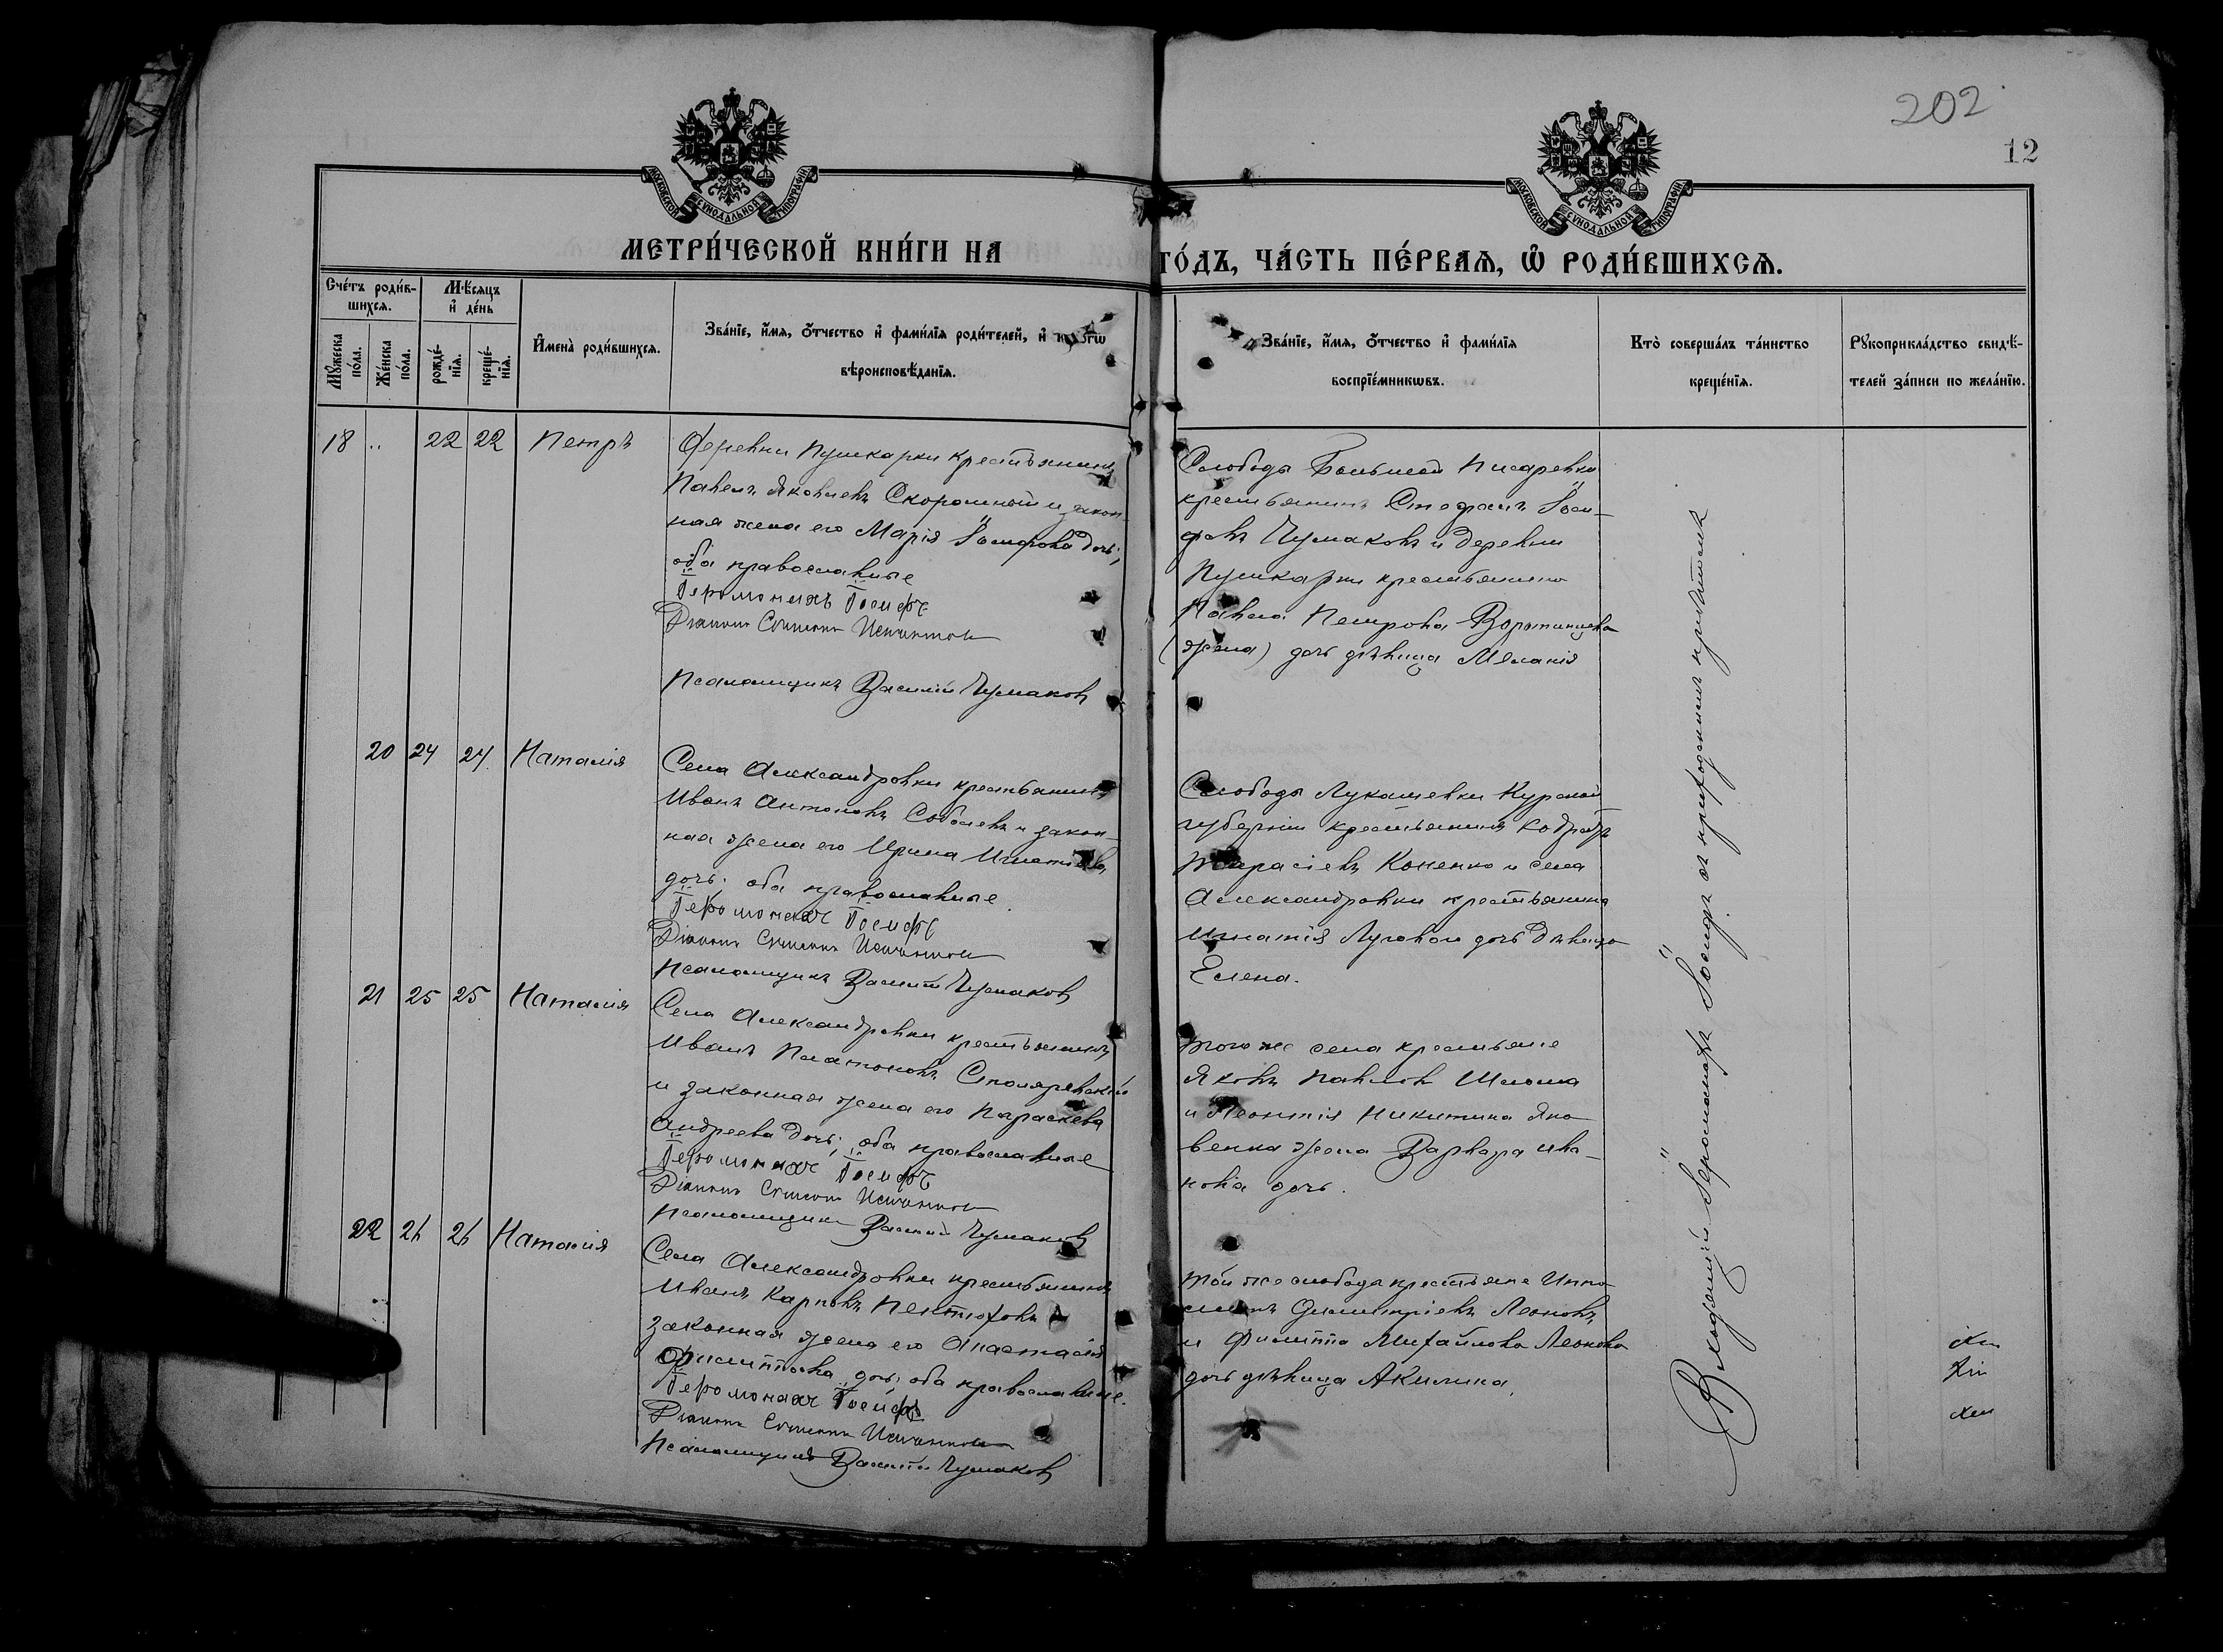 202
12
МОСКОВСКОЙ СѴНОДАЛЬНОЙ ТИПОГРАФІИ
МОСКОВСКОЙ СѴНОДАЛЬНОЙ ТИПОГРАФІИ
МЕТРИ́ЧЕСКОЙ КНИ́ГИ НА
ГО́ДЪ, ЧА́СТЬ ПЕ́РВАѦ, Ѡ҆ РОДИ́ВШИХСѦ.
Сче́тъ роди́в-
шихся.
Мѣ́сяцъ
и҆ де́нь
Мꙋ́жеска по́ла.
Же́нска по́ла.
рожде́-нїя.
креще́-нїя.
И҆мена̀ роди́вшихся.
Зва́нїе, и҆́мя, ѻ҆́тчество и҆ фами́лїя роди́телей, и҆
вѣроисповѣ́данїя.
Зва́нїе, и҆́мя, ѻ҆́тчество и҆ фами́лїя
воспрїе́мникѡвъ.
Кто̀ соверша́лъ та́инство
креще́нїя.
Рꙋкоприкла́дство свидѣ́-
телей за́писи по жела́нїю.
18 " 22 22 Петръ
Деревни Пушкарки крестьянинъ
Павелъ Яковлевъ Скоромный и закон-
ная жена его Марія Іосифова дочь;
оба православные
Іеромонахъ Іосифъ
Діаконъ Стефанъ
Псаломщикъ Василій Чумаковъ
Слободы Большой Писаревки
крестьянинъ Стефанъ Іоси-
фовъ Чумаковъ и деревни
Пушкарки крестьянина
Павла Петрова Воротинцева
(жена) дочь дѣвица Меланія
20 24 24 Наталія
Села Александровки крестьянинъ
Иванъ Антоновъ Соболевъ и закон-
ная жена его Ирина Игнатіева
дочь; оба православные.
Іеромонахъ Іосифъ
Діаконъ Стефанъ
Псаломщикъ Василій Чумаковъ
Слободы Лукашевки Курской
губерніи крестьянинъ Кодратъ
Тарасіевъ Коненко и села
Александровки крестьянина
Игнатія Лугового дочь дѣвица
Елена.
21 25 25 Наталія
Села Александровки крестьянинъ
Иванъ Платоновъ Столяревскій
и законная жена его Параскева
Андреева дочь; оба православные
Іеромонахъ Іосифъ
Діаконъ Стефанъ
Псаломщикъ Василій Чумаковъ
Того же села крестьяне
Яковъ Павловъ
и Леонтія Никитина Яко-
венка жена Варвара Ива-
нова дочь.
22 26 26 Наталія
Села Александровки крестьянинъ
Иванъ Карповъ Пентюховъ и
законная жена его Анастасія
Филиппова дочь; оба православные.
Іеромонахъ Іосифъ
Діаконъ Стефанъ
Псаломщикъ Василій Чумаковъ
Той же слободы крестьяне Иппо-
литъ Димитріевъ Леоновъ
и Филиппа Михайлова Леонова
дочь дѣвица Акилина.
Іеромонахъ Іосифъ съ приходскимъ причтомъ